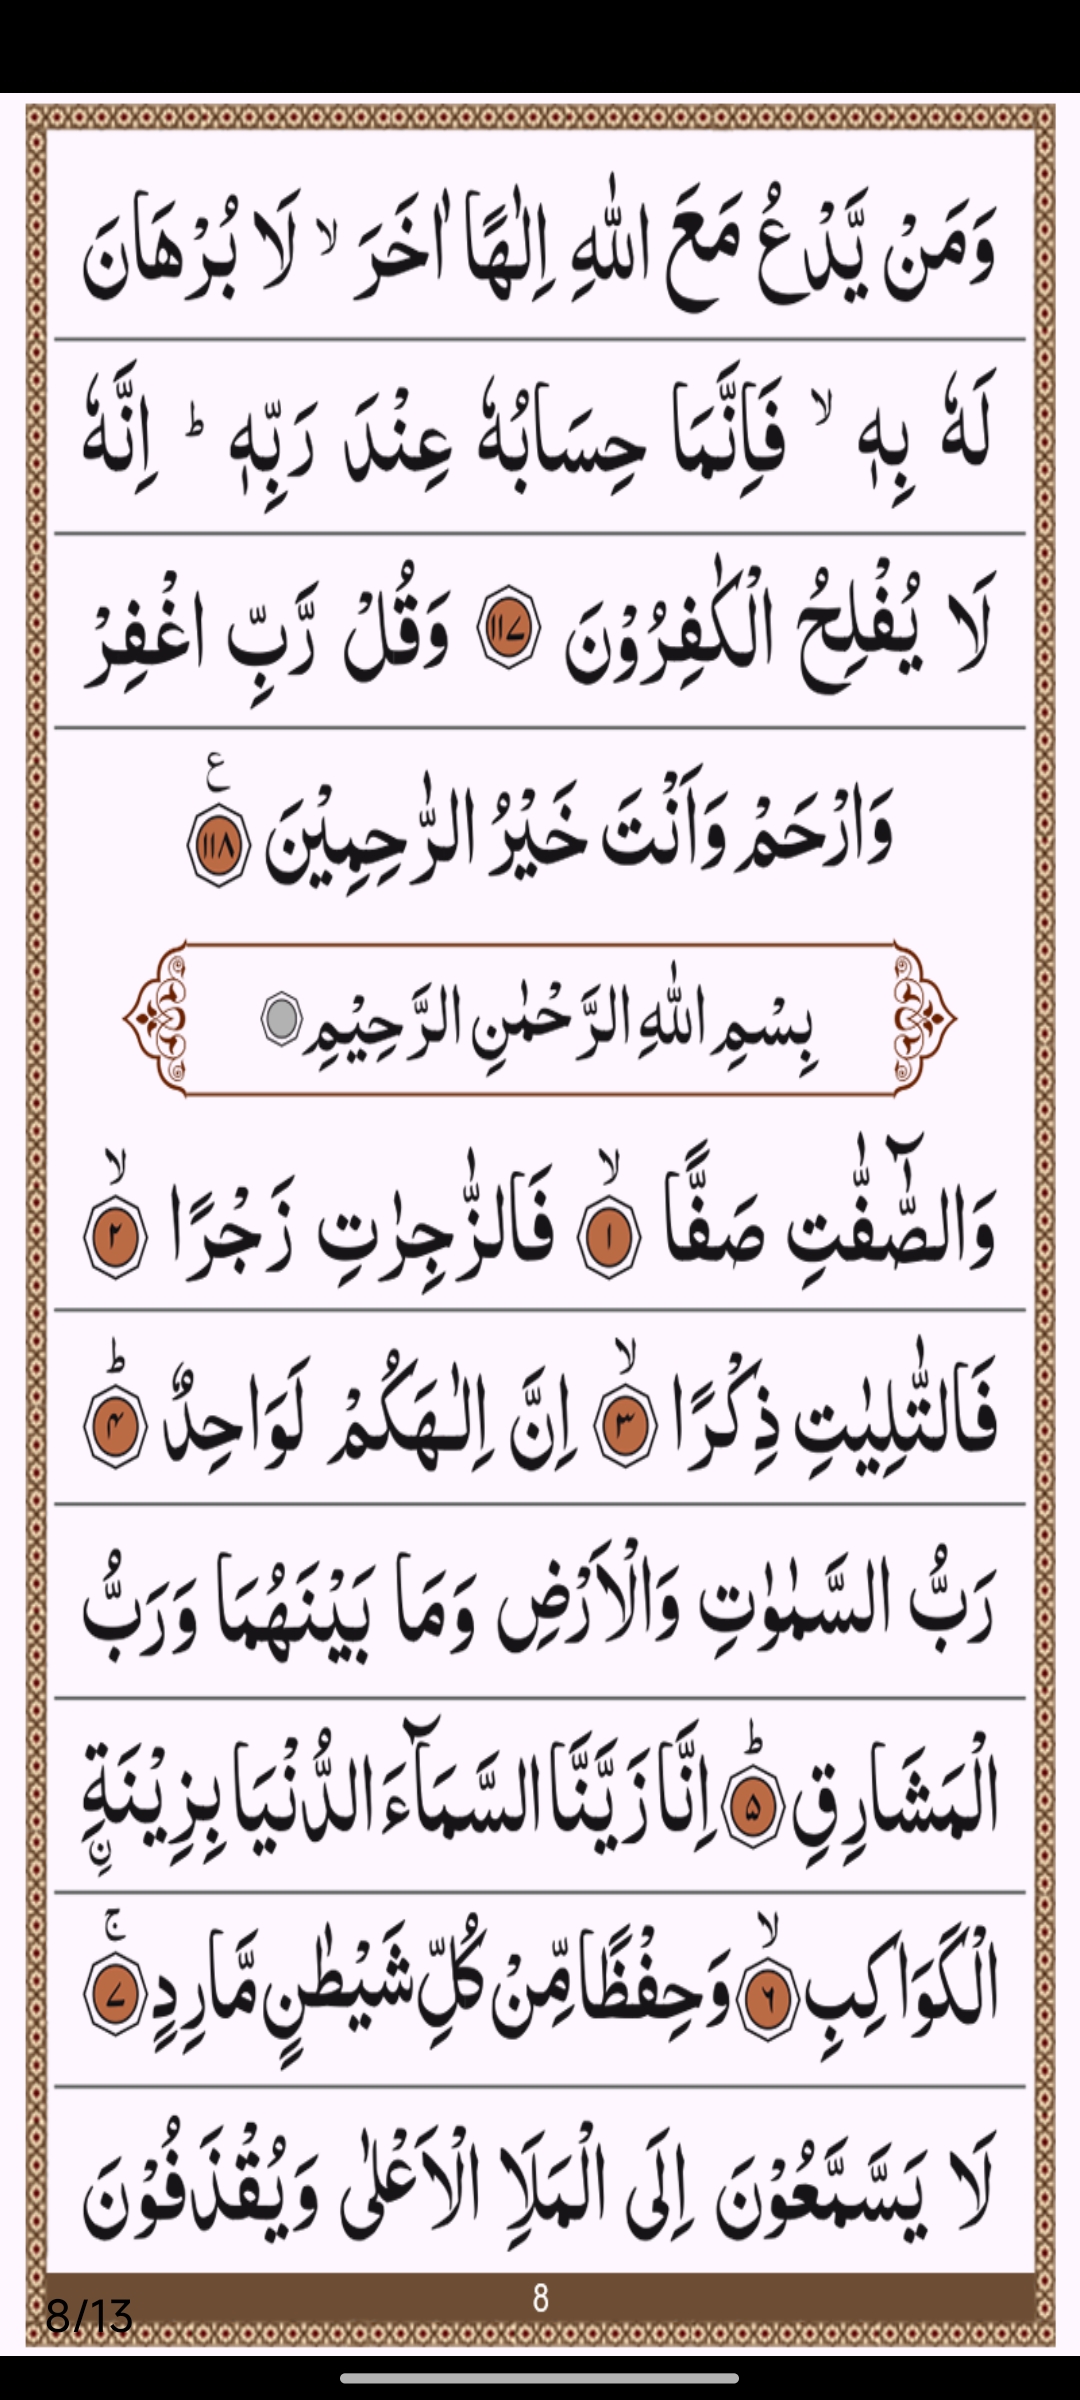 وَمَنْ يَّدْعُ مَعَ اللّٰهِ اِلٰهًا اٰخَرَ ۙ لَا بُرْهَانَ
لَهٗ بِهٖ ۙ فَاِنَّمَا حِسَابُهٗ عِنْدَ رَبِّهٖ ؕ اِنَّهٗ
لَا يُفْلِحُ الْكٰفِرُوْنَ ۝۱۱۷ وَقُلْ رَّبِّ اغْفِرْ
وَارْحَمْ وَاَنْتَ خَيْرُ الرّٰحِمِيْنَ ۝۱۱۸ ع
بِسْمِ اللّٰهِ الرَّحْمٰنِ الرَّحِيْمِ
وَالصّٰٓفّٰتِ صَفًّا ۙ۝۱ فَالزّٰجِرٰتِ زَجْرًا ۙ۝۲
فَالتّٰلِيٰتِ ذِكْرًا ۙ۝۳ اِنَّ اِلٰهَكُمْ لَوَاحِدٌ ؕ۝۴
رَبُّ السَّمٰوٰتِ وَالْاَرْضِ وَمَا بَيْنَهُمَا وَرَبُّ
الْمَشَارِقِ ؕ۝۵ اِنَّا زَيَّنَّا السَّمَآءَ الدُّنْيَا بِزِيْنَةِ ۨ
الْكَوَاكِبِ ۙ۝۶ وَحِفْظًا مِّنْ كُلِّ شَيْطٰنٍ مَّارِدٍ ۚ۝۷
لَا يَسَّمَّعُوْنَ اِلَى الْمَلَاِ الْاَعْلٰى وَيُقْذَفُوْنَ
8
8/13